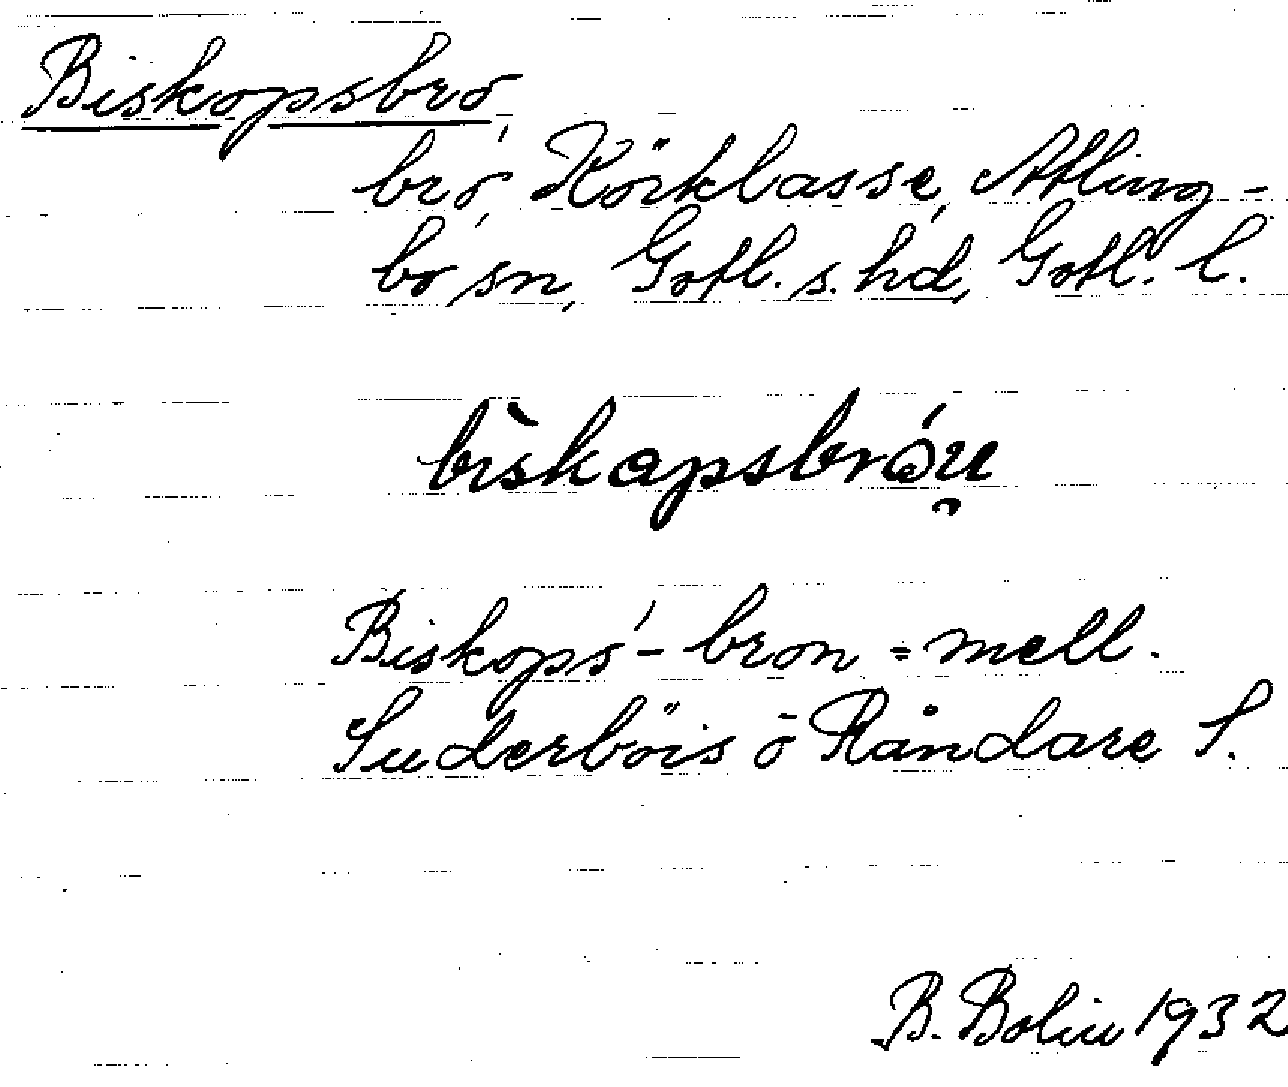 Biskopsbro,
bro, Körklasse, Atling-
bo sn, Gotl. s. hd, Gotl. l.
bìskapsbróu̯
Biskops'- bron = mell.
Suderböis o Råndare S.
B. Bolin 1932